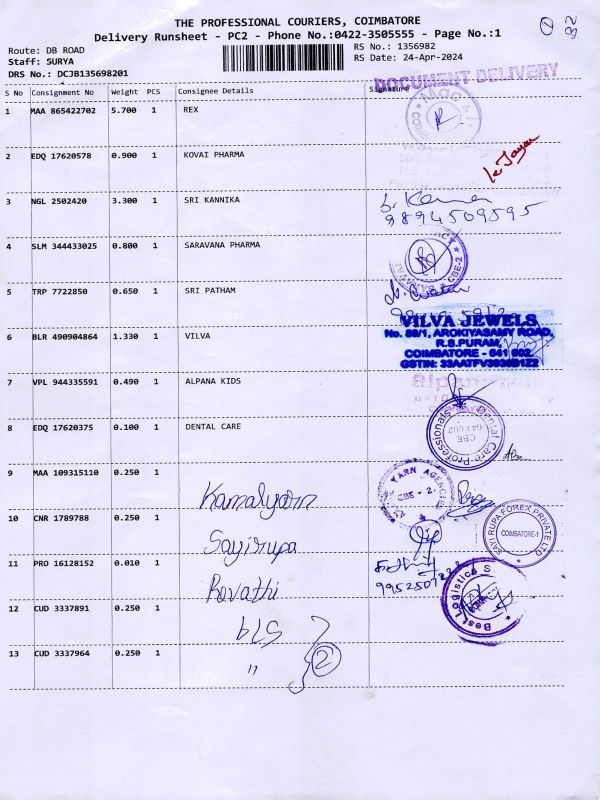 THE PROFESSIONAL COURIERS, COIMBATORE
Delivery Runsheet - PC2 - Phone No.:0422-3505555 - Page No.:1
Route: DB ROAD
RS No.: 1356982
Staff: SURYA
RS Date: 24-Apr-2024
DRS No.: DCJB135698201
DOCUMENT DELIVERY
S No Consignment No Weight PCS Consignee Details Signature
1 MAA 865422702 5.700 1 REX
2 EDQ 17620578 0.900 1 KOVAI PHARMA
3 NGL 2502420 3.300 1 SRI KANNIKA
9894509595
4 SLM 344433025 0.800 1 SARAVANA PHARMA
CBE-2
5 TRP 7722850 0.650 1 SRI PATHAM
6 BLR 490904864 1.330 1 VILVA
VILVA JEWELS
No. 88/1, AROKIYASAMY ROAD,
R.S.PURAM,
COIMBATORE - 641 002.
7 VPL 944335591 0.490 1 ALPANA KIDS
alpana
8 EDQ 17620375 0.100 1 DENTAL CARE
Dental Care-Professionals
CBE
641 002
9 MAA 109315110 0.250 1
YARN AGENCIES
CBE - 2
10 CNR 1789788 0.250 1 Sayirupa
SAYI RUPA FOREX PRIVATE LTD
COIMBATORE-1
11 PRO 16128152 0.010 1 Revathi
12 CUD 3337891 0.250 1
Best Logistics
13 CUD 3337964 0.250 1 "
2